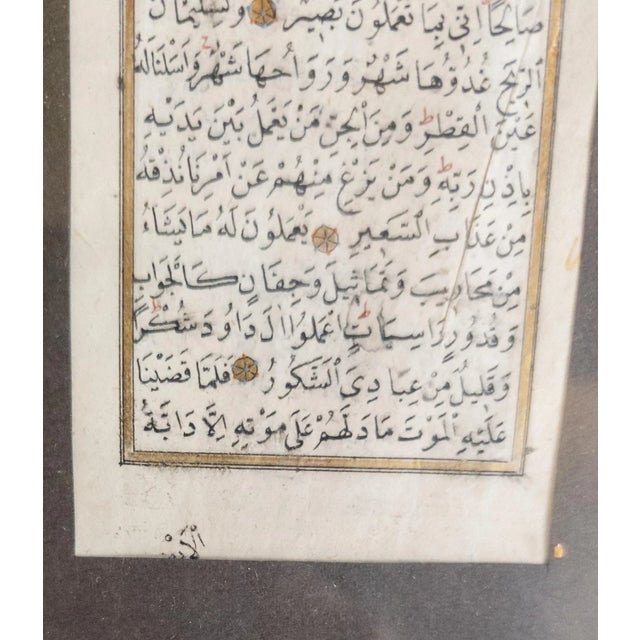 صَالِحًا اِنّٖى بِمَا تَعْمَلُونَ بَصٖيرٌ وَلِسُلَيْمٰانَ
الرّٖيحَ غُدُوُّهَا شَهْرٌ وَرَوَاحُهَا شَهْرٌ وَاَسَلْنَا لَهُ
عَيْنَ الْقِطْرِ وَمِنَ الْجِنِّ مَنْ يَعْمَلُ بَيْنَ يَدَيْهِ
بِاِذْنِ رَبِّهٖ وَمَنْ يَزِغْ مِنْهُمْ عَنْ اَمْرِنَا نُذِقْهُ
مِنْ عَذَابِ السَّعٖيرِ يَعْمَلُونَ لَهُ مَا يَشَاءُ
مِنْ مَحَارٖيبَ وَتَمَاثٖيلَ وَجِفَانٍ كَالْجَوَابِ
وَقُدُورٍ رَاسِيَاتٍ اِعْمَلُوا اٰلَ دَاوُدَ شُكْرًا
وَقَلٖيلٌ مِنْ عِبَادِىَ الشَّكُورُ فَلَمَّا قَضَيْنَا
عَلَيْهِ الْمَوْتَ مَا دَلَّهُمْ عَلٰى مَوْتِهٖ اِلَّا دَابَّةُ
الْاَرْضِ